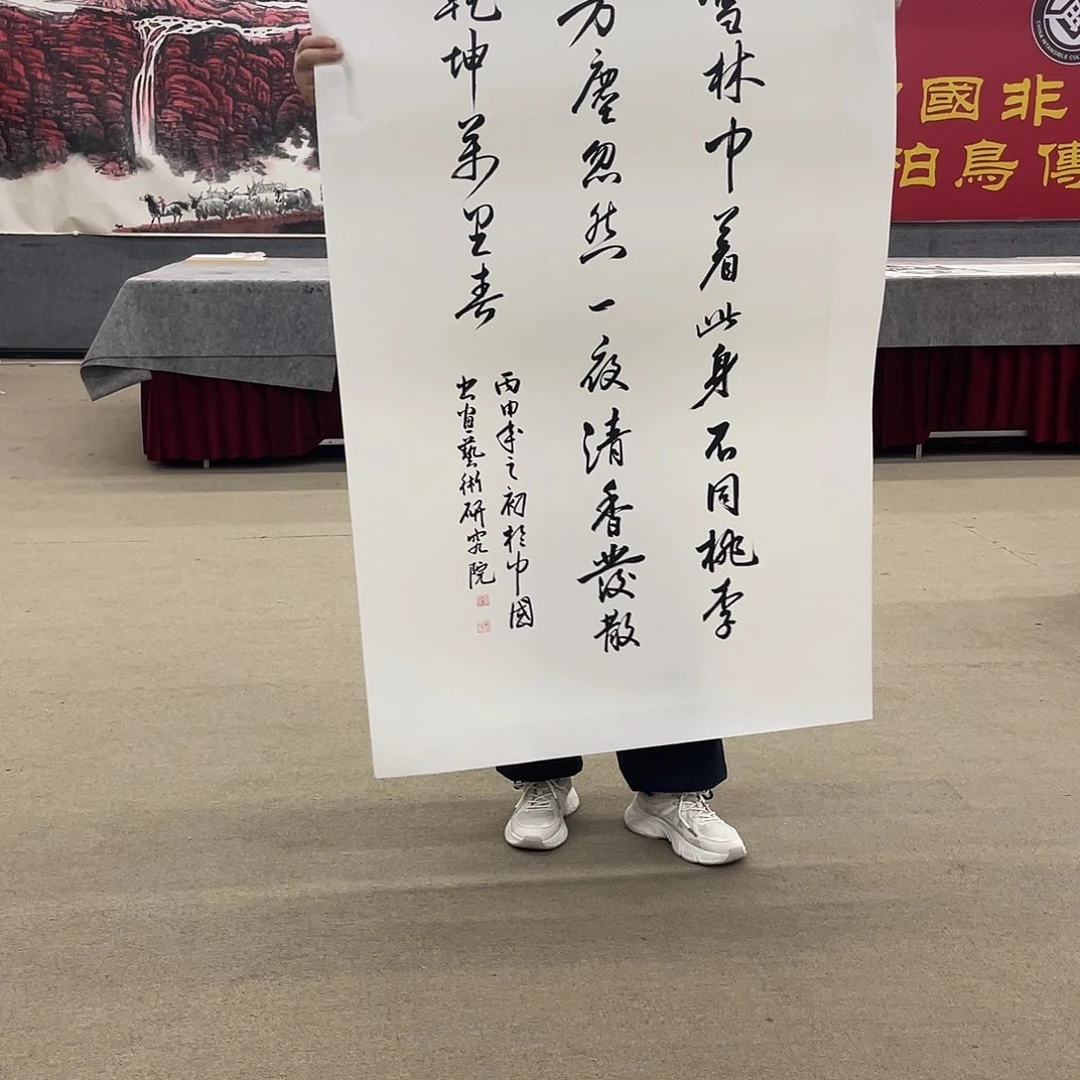 雪林中着此身不同桃李
芳塵忽然一夜清香發散
乾坤萬里春
丙申年之初於中國
書畫藝術研究院
國非
鳥傳
CHINA INTANGIBLE